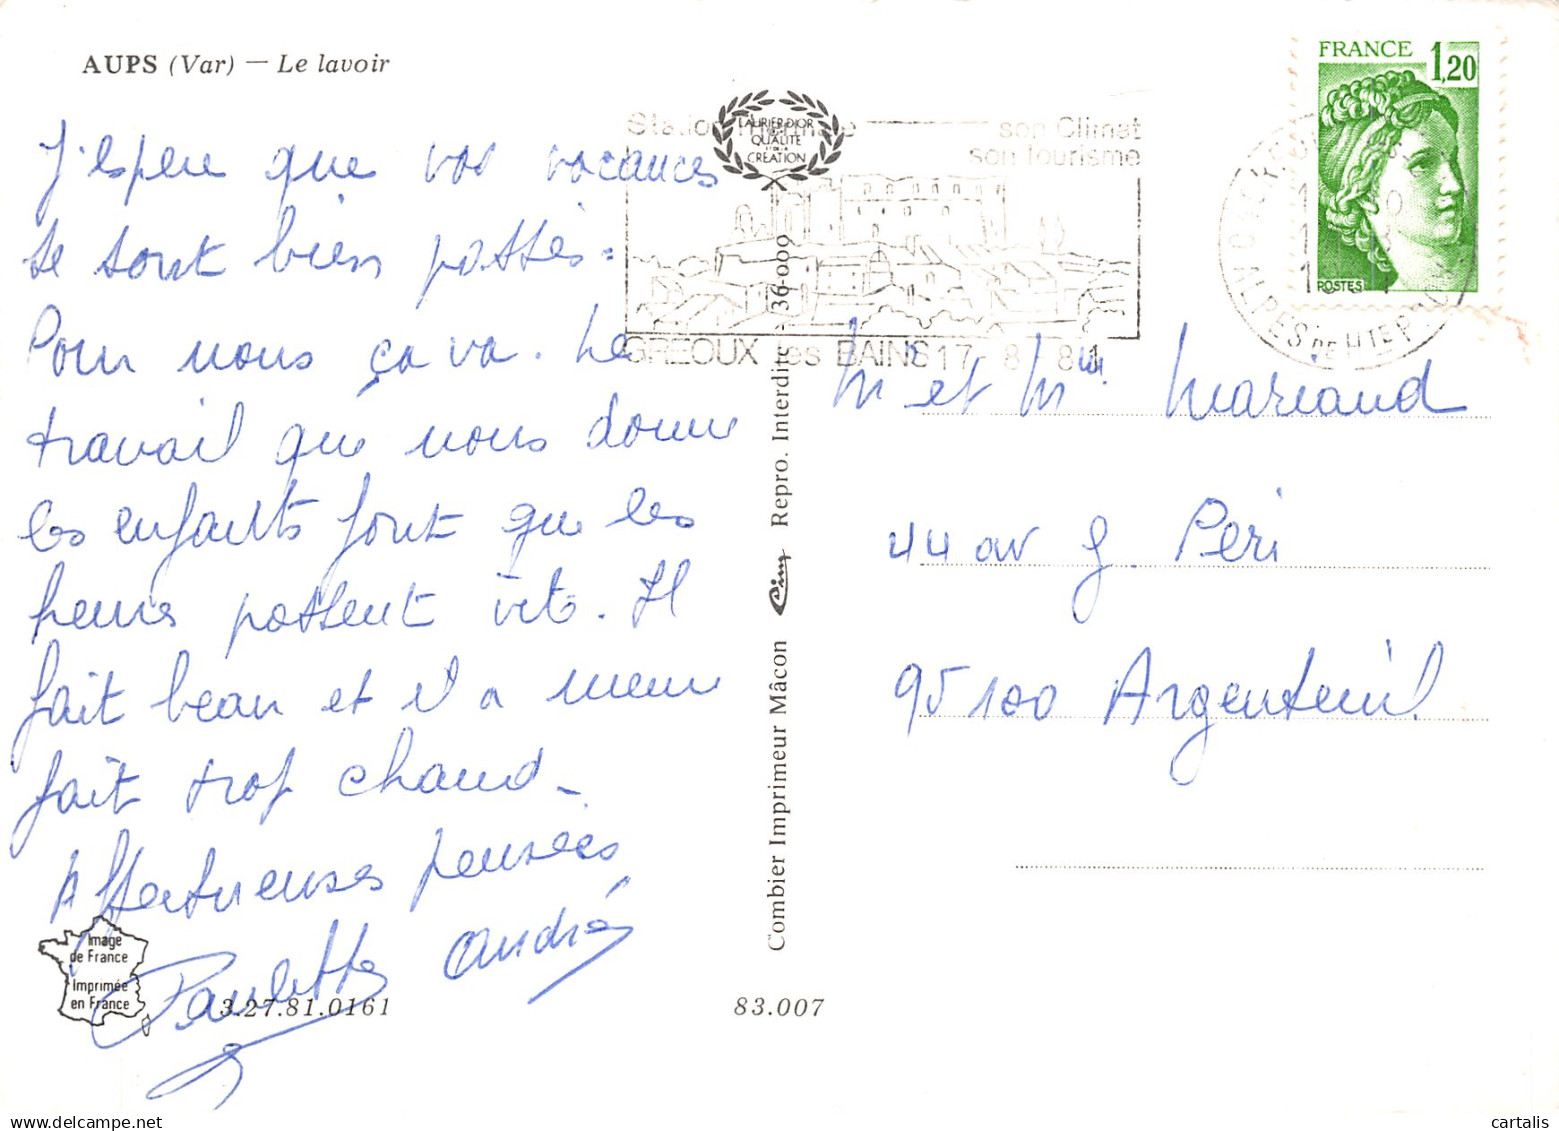 AUPS (Var) — Le lavoir
J'espère que vos vacances
se sont bien passés.
Pour nous ça va. Le
travail que nous donne
les enfants font que les
heures passent vite. Il
fait beau et il a meme
fait trop chaud_
Affectueuses pensées
Paulette André
Image
de France
Imprimée
en France
3.27.81.0161
83.007
LAURIER D'OR
QUALITÉ
CRÉATION
Station thermale son Climat
son tourisme
GREOUX les BAINS 17 8 81
Combier Imprimeur Mâcon Cim Repro. Interdite 36-000
FRANCE 1,20
POSTES
ALPES DE HTE P
M et Mme Mariaud
44 av G. Peri
95100 Argenteuil
cartalis